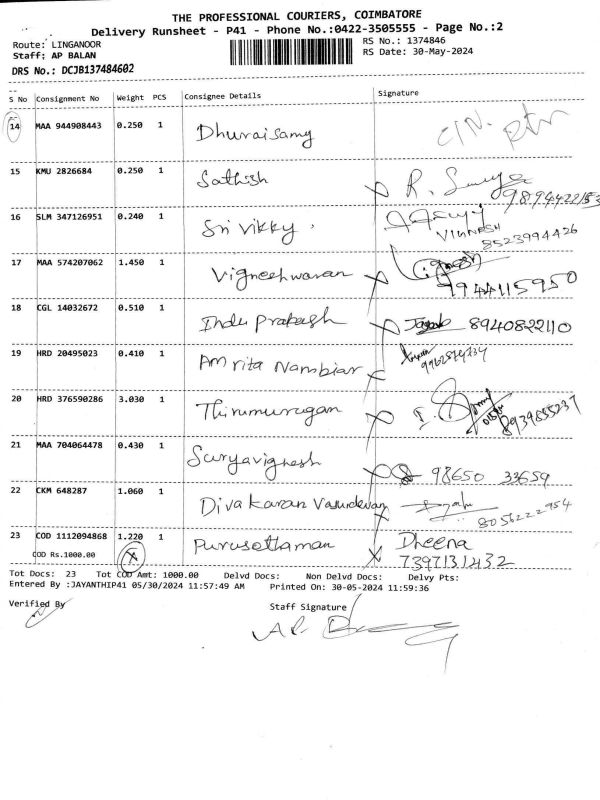 THE PROFESSIONAL COURIERS, COIMBATORE
Delivery Runsheet - P41 - Phone No.:0422-3505555 - Page No.:2
Route: LINGANOOR RS No.: 1374846
Staff: AP BALAN RS Date: 30-May-2024
DRS No.: DCJB137484602
S No Consignment No Weight PCS Consignee Details Signature
14 MAA 944908443 0.250 1 Dhuraisamy
15 KMU 2826684 0.250 1 Sathish R. Surya
9894422153
16 SLM 347126951 0.240 1 Sri Vikky
VIGNESH
8523994426
17 MAA 574207062 1.450 1 Vigneshwaran
9944115950
18 CGL 14032672 0.510 1 Indu Prakash 8940822110
19 HRD 20495023 0.410 1 AMrita Nambiar
20 HRD 376590286 3.030 1 Thirumurugan
8939855237
21 MAA 704064478 0.430 1 Suryavignesh 98650 33659
22 CKM 648287 1.060 1 Divakaran Vasudevan
8056222954
23 COD 1112094868 1.220 1 Purusothaman Dheena
COD Rs.1000.00 X 7397131432
Tot Docs: 23 Tot COD Amt: 1000.00 Delvd Docs: Non Delvd Docs: Delvy Pts:
Entered By :JAYANTHIP41 05/30/2024 11:57:49 AM Printed On: 30-05-2024 11:59:36
Verified By Staff Signature